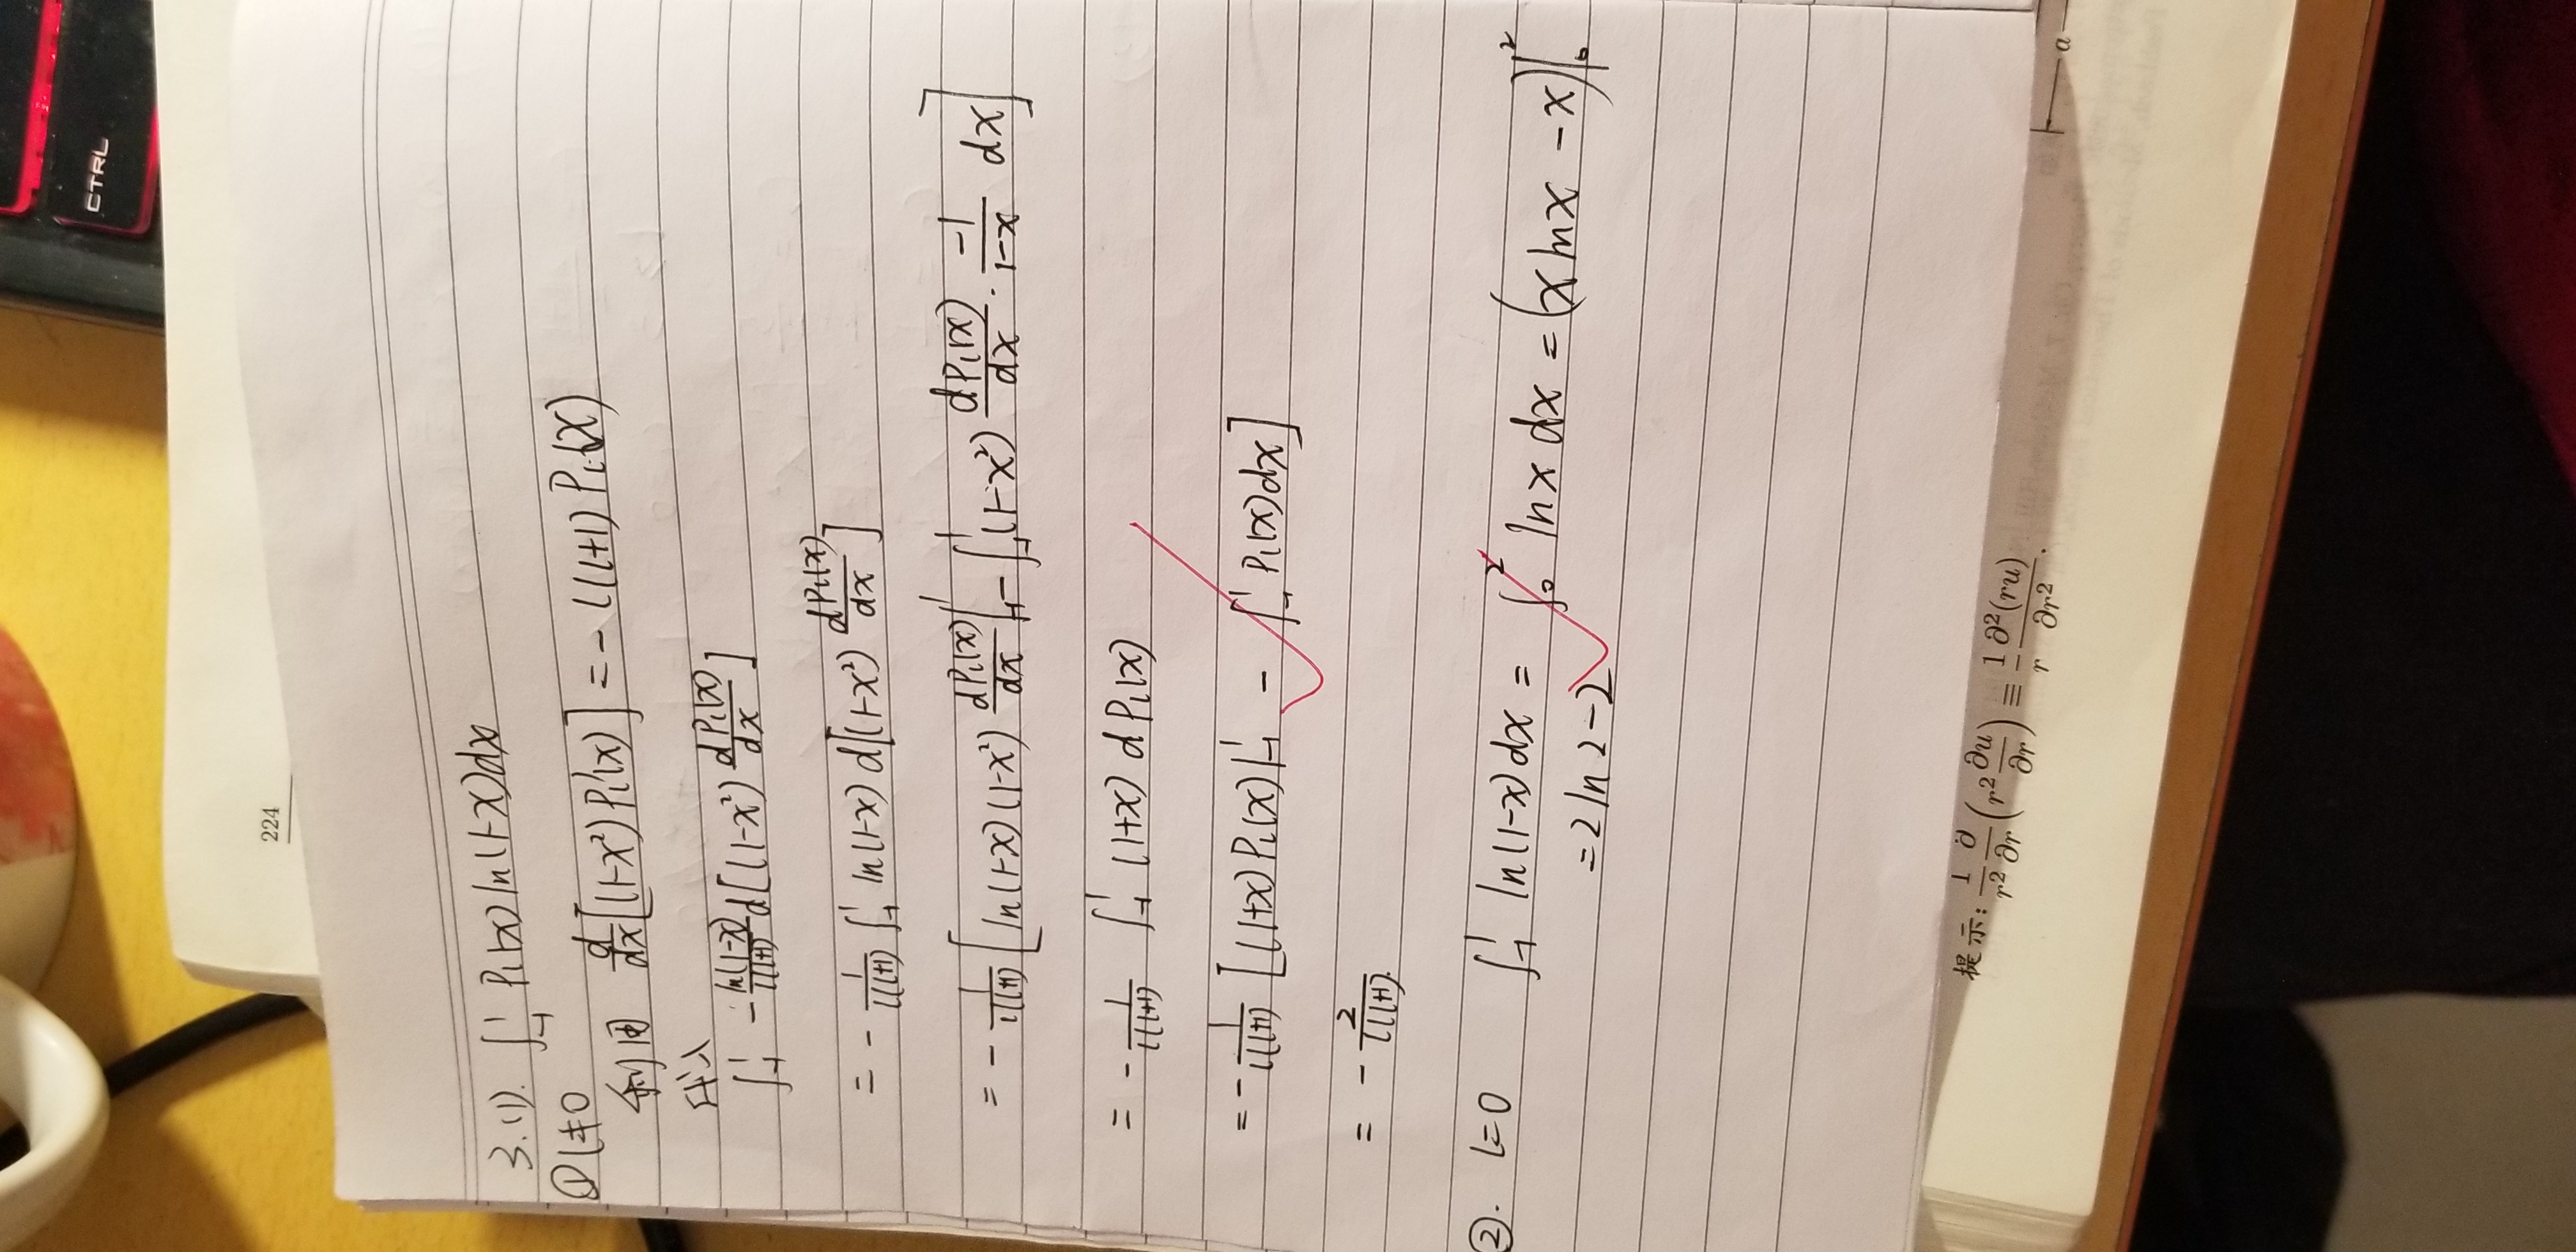 CTRL
224
3.(1). ∫_{-1}^{1} P_l(x) ln(1-x)dx
① l≠0
利用 d/dx[(1-x²)P_l'(x)] = -l(l+1) P_l(x)
代入
∫_{-1}^{1} -ln(1-x)/l(l+1) d[(1-x²) dP_l(x)/dx]
= - 1/l(l+1) ∫_{-1}^{1} ln(1-x) d[(1-x²) dP_l(x)/dx]
= - 1/l(l+1) [ln(1-x)(1-x²) dP_l(x)/dx |_{-1}^{1} - ∫_{-1}^{1} (1-x²) dP_l(x)/dx · -1/1-x dx]
= - 1/l(l+1) ∫_{-1}^{1} (1+x) dP_l(x)
= - 1/l(l+1) [(1+x)P_l(x)|_{-1}^{1} - ∫_{-1}^{1} P_l(x)dx]
= - 2/l(l+1).
②. l=0 ∫_{-1}^{1} ln(1-x)dx = ∫_0^2 ln x dx = (x ln x - x)|_0^2
= 2 ln 2 - 2
提示: 1/r² ∂/∂r (r² ∂u/∂r) ≡ 1/r ∂²(ru)/∂r².
a